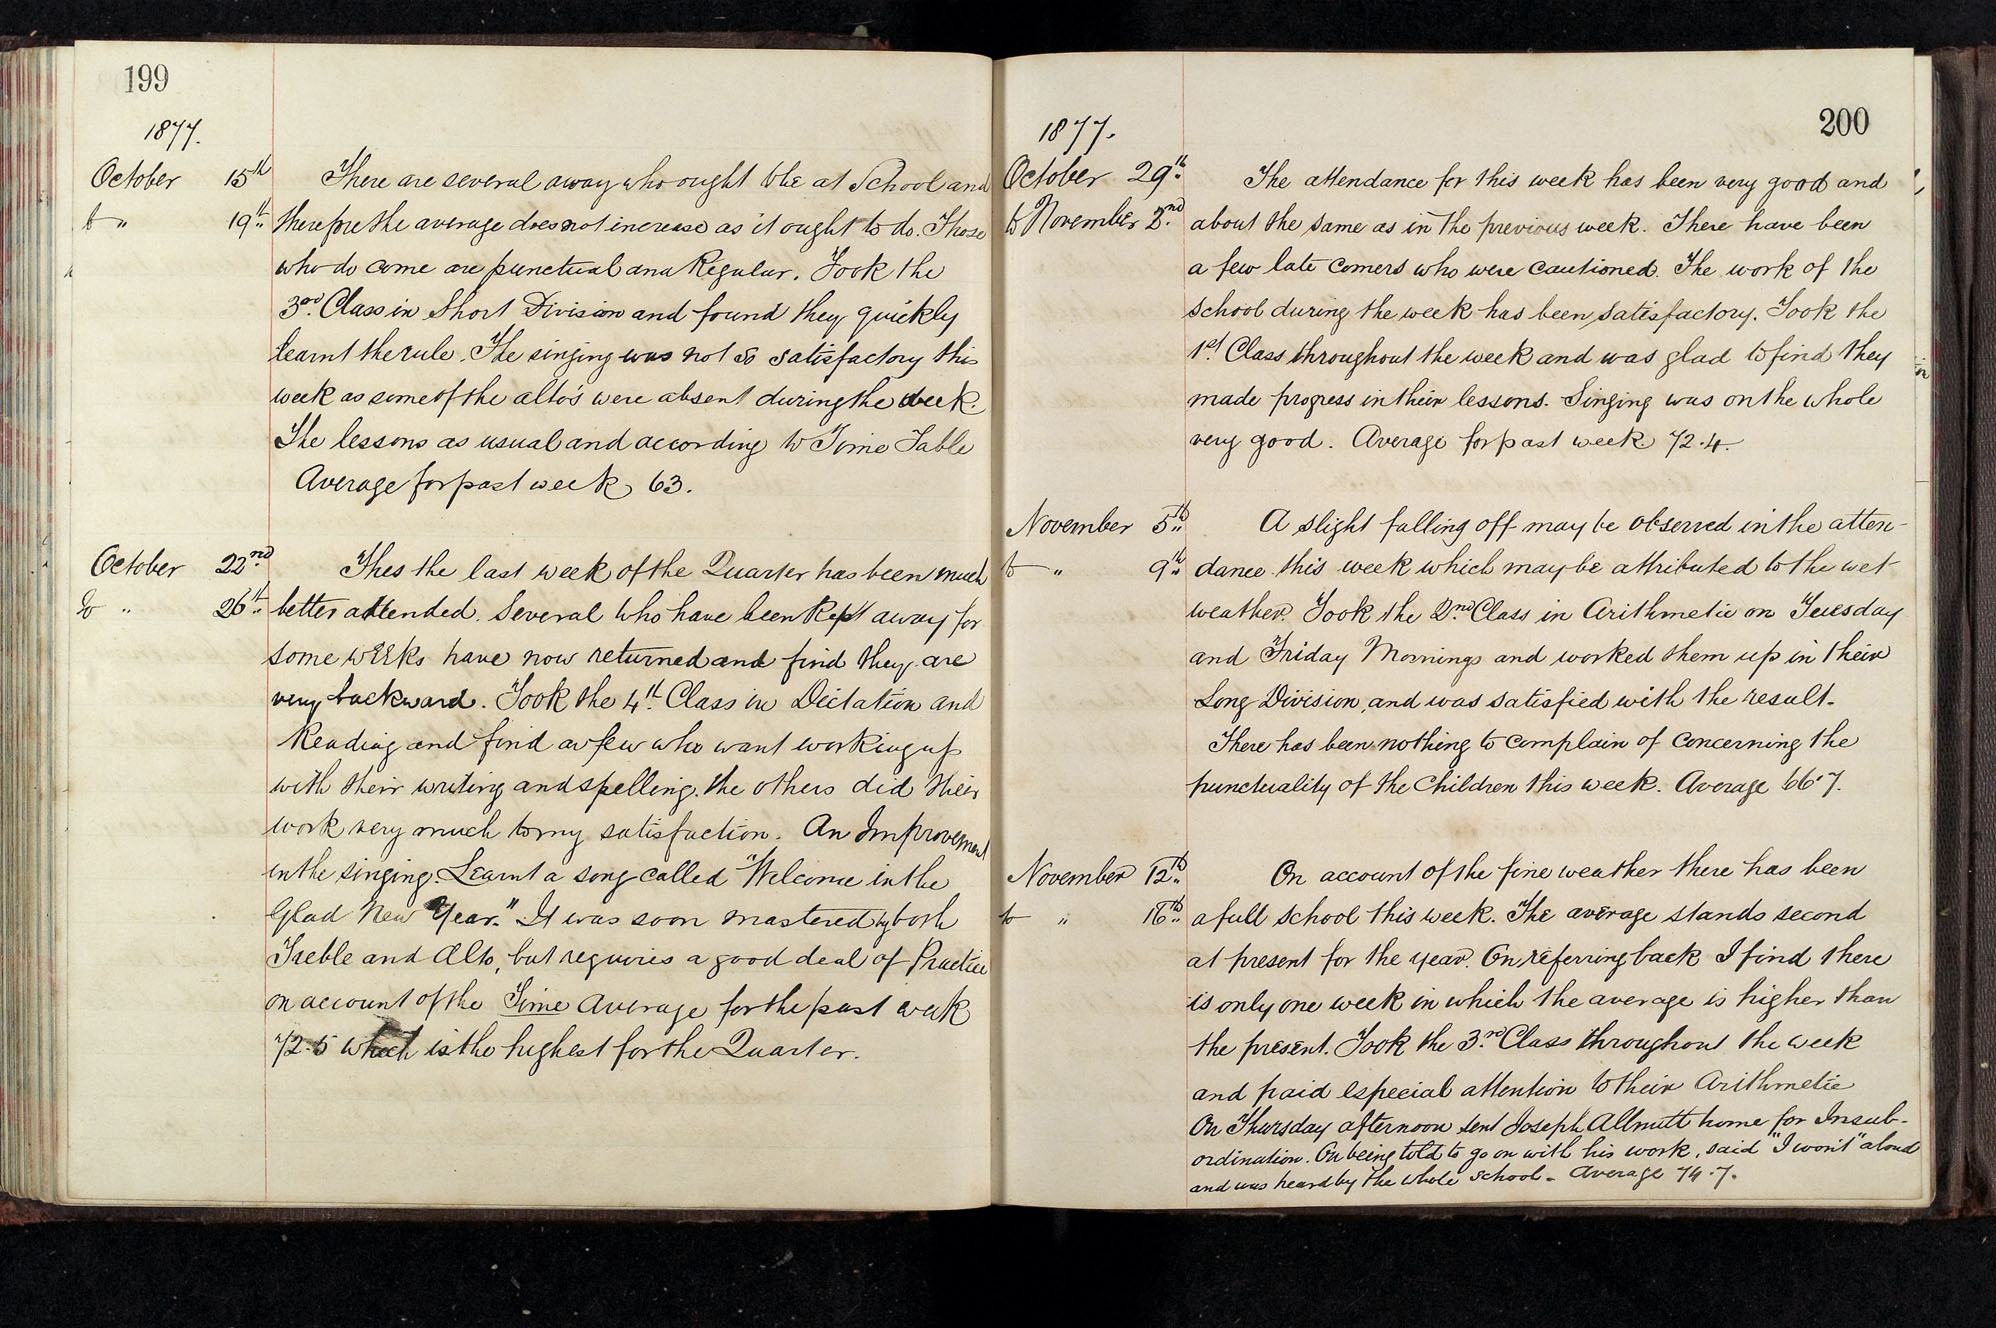 199
1877.
October 15th There are several away who ought to be at School and
to " 19th therefore the average does not increase as it ought to do. Those
who do come are punctual and Regular. Took the
3rd Class in Short Division and found they quickly
learnt the rule. The singing was not so satisfactory this
week as some of the alto's were absent during the week.
The lessons as usual and according to Time Table
Average for past week 63.
October 22nd Thes the last week of the Quarter has been much
To " 26th better attended. Several who have been kept away for
some weeks have now returned and find they are
very backward. Took the 4th Class in Dictation and
Reading and find a few who want working up
with their writing and spelling. the others did their
work very much to my satisfaction. An Improvement
in the singing. Learnt a song called "Welcome in the
Glad New Year." It was soon mastered by both
Treble and Alto, but requires a good deal of Practice
on account of the Time Average for the past week
72.5 which is the highest for the Quarter.
200
1877.
October 29th The attendance for this week has been very good and
to November 2nd about the same as in the previous week. There have been
a few late comers who were cautioned. The work of the
school during the week has been satisfactory. Took the
1st Class throughout the week and was glad to find they
made progress in their lessons. Singing was on the whole
very good. Average for past week 72.4.
November 5th A slight falling off may be observed in the atten-
to " 9th dance this week which may be attributed to the wet
weather. Took the 2nd Class in Arithmetic on Tuesday
and Friday Mornings and worked them up in their
Long Division, and was satisfied with the result.
There has been nothing to complain of concerning the
punctuality of the Children this week. Average 66.7.
November 12th On account of the fine weather there has been
to " 16th a full school this week. The average stands second
at present for the year. On referring back I find there
is only one week in which the average is higher than
the present. Took the 3rd Class throughout the week
and paid especial attention to their Arithmetic
On Thursday afternoon sent Joseph Allnutt home for Insub-
ordination. On being told to go on with his work, said "I won't" aloud
and was heard by the whole school. Average 74.7.